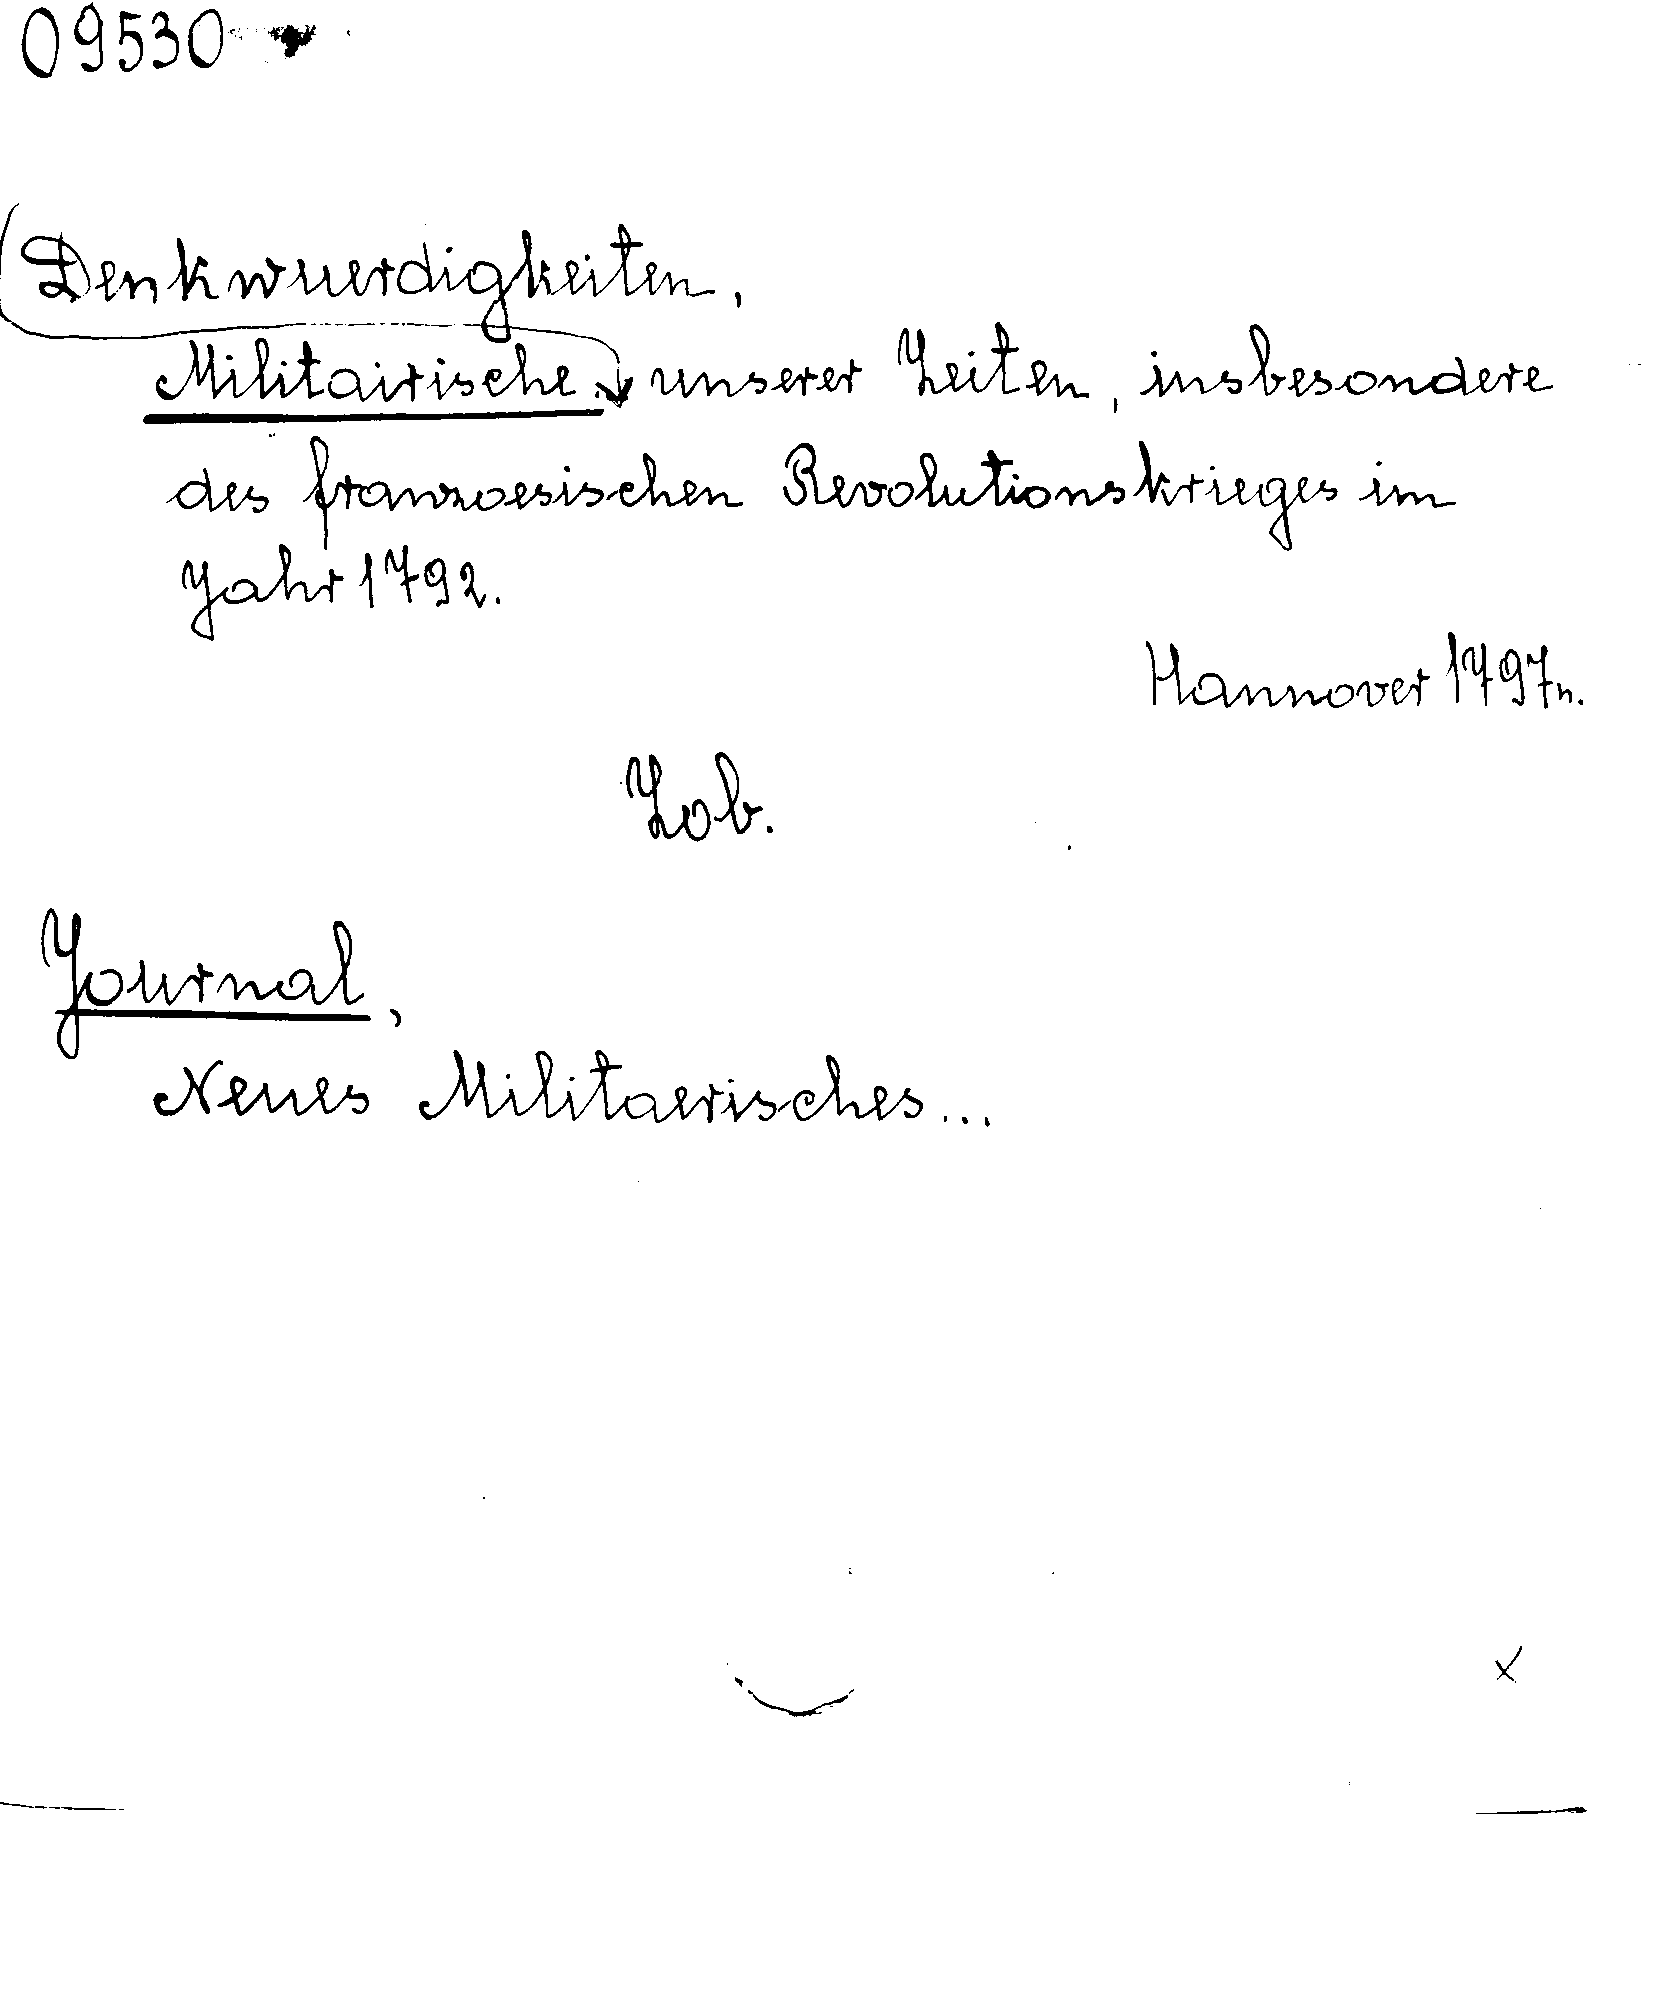 09530
Denkwuerdigkeiten,
Militairische unserer Zeiten, insbesondere
des franzoesischen Revolutionskrieges im
Jahr 1792.
Hannover 1797n.
Zob.
Journal,
Neues Militaerisches...
x